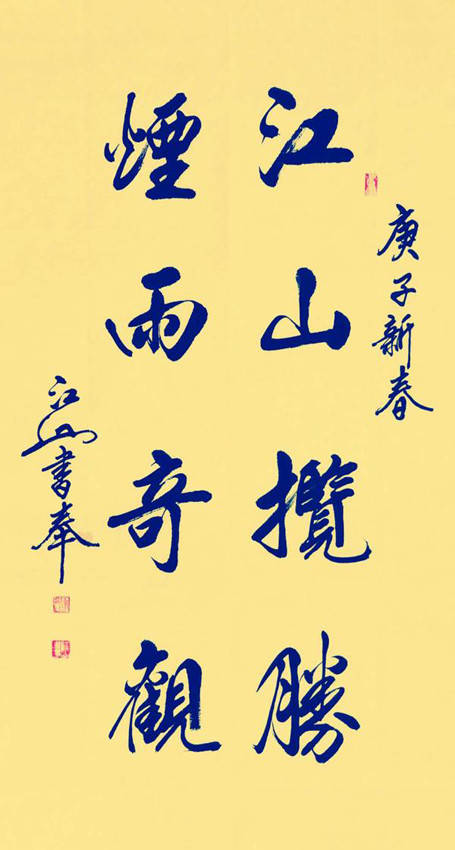 庚子新春
江山攬勝
煙雨奇觀
江山書奉